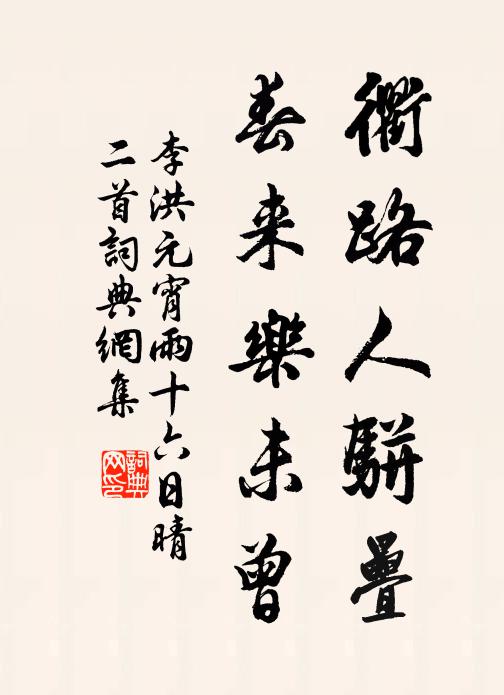 衢路人駢疊
春来樂未曾
李洪元宵雨十六日晴
二首詞典網集
詞典网印